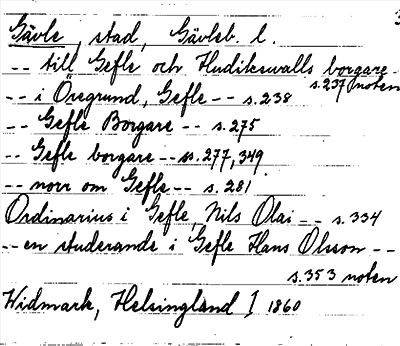 Gävle, stad, Gävleb. l.
-- till Gefle och Hudikswalls borgare --
s.237 noten
-- i Öregrund, Gefle -- s.238
-- Gefle Borgare -- s.275
-- Gefle borgare -- ss.277, 349
-- norr om Gefle -- s.281
Ordinarius i Gefle, Nils Olai -- s.334
-- en studerande i Gefle Hans Olsson --
s.353 noten
Widmark, Helsingland I 1860